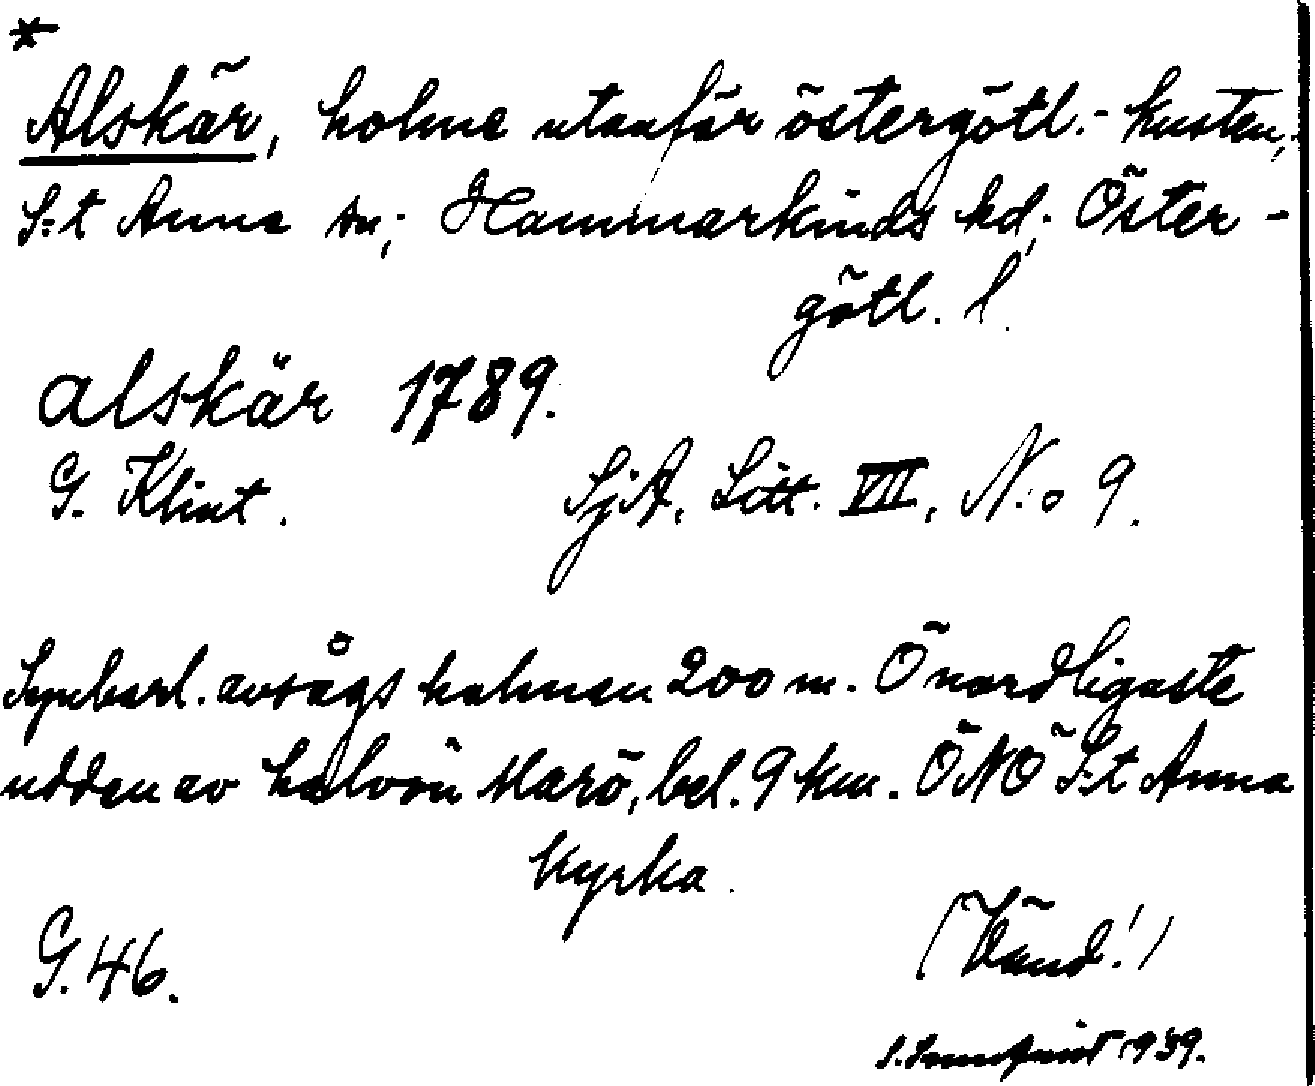 *
Alskär, holme utanför östergötl.-kusten,
S:t Anna sn; Hammarkinds hd; Öster-
götl. l.
alskär 1789.
G. Klint. SjA, Litt. VII, N:o 9.
Synbarl. avsågs holmen 200 m. Ö nordligaste
udden av halvön Marö, bel. 9 km. ÖNÖ S:t Anna
kyrka.
G. 46.
(Vänd!)
1939.